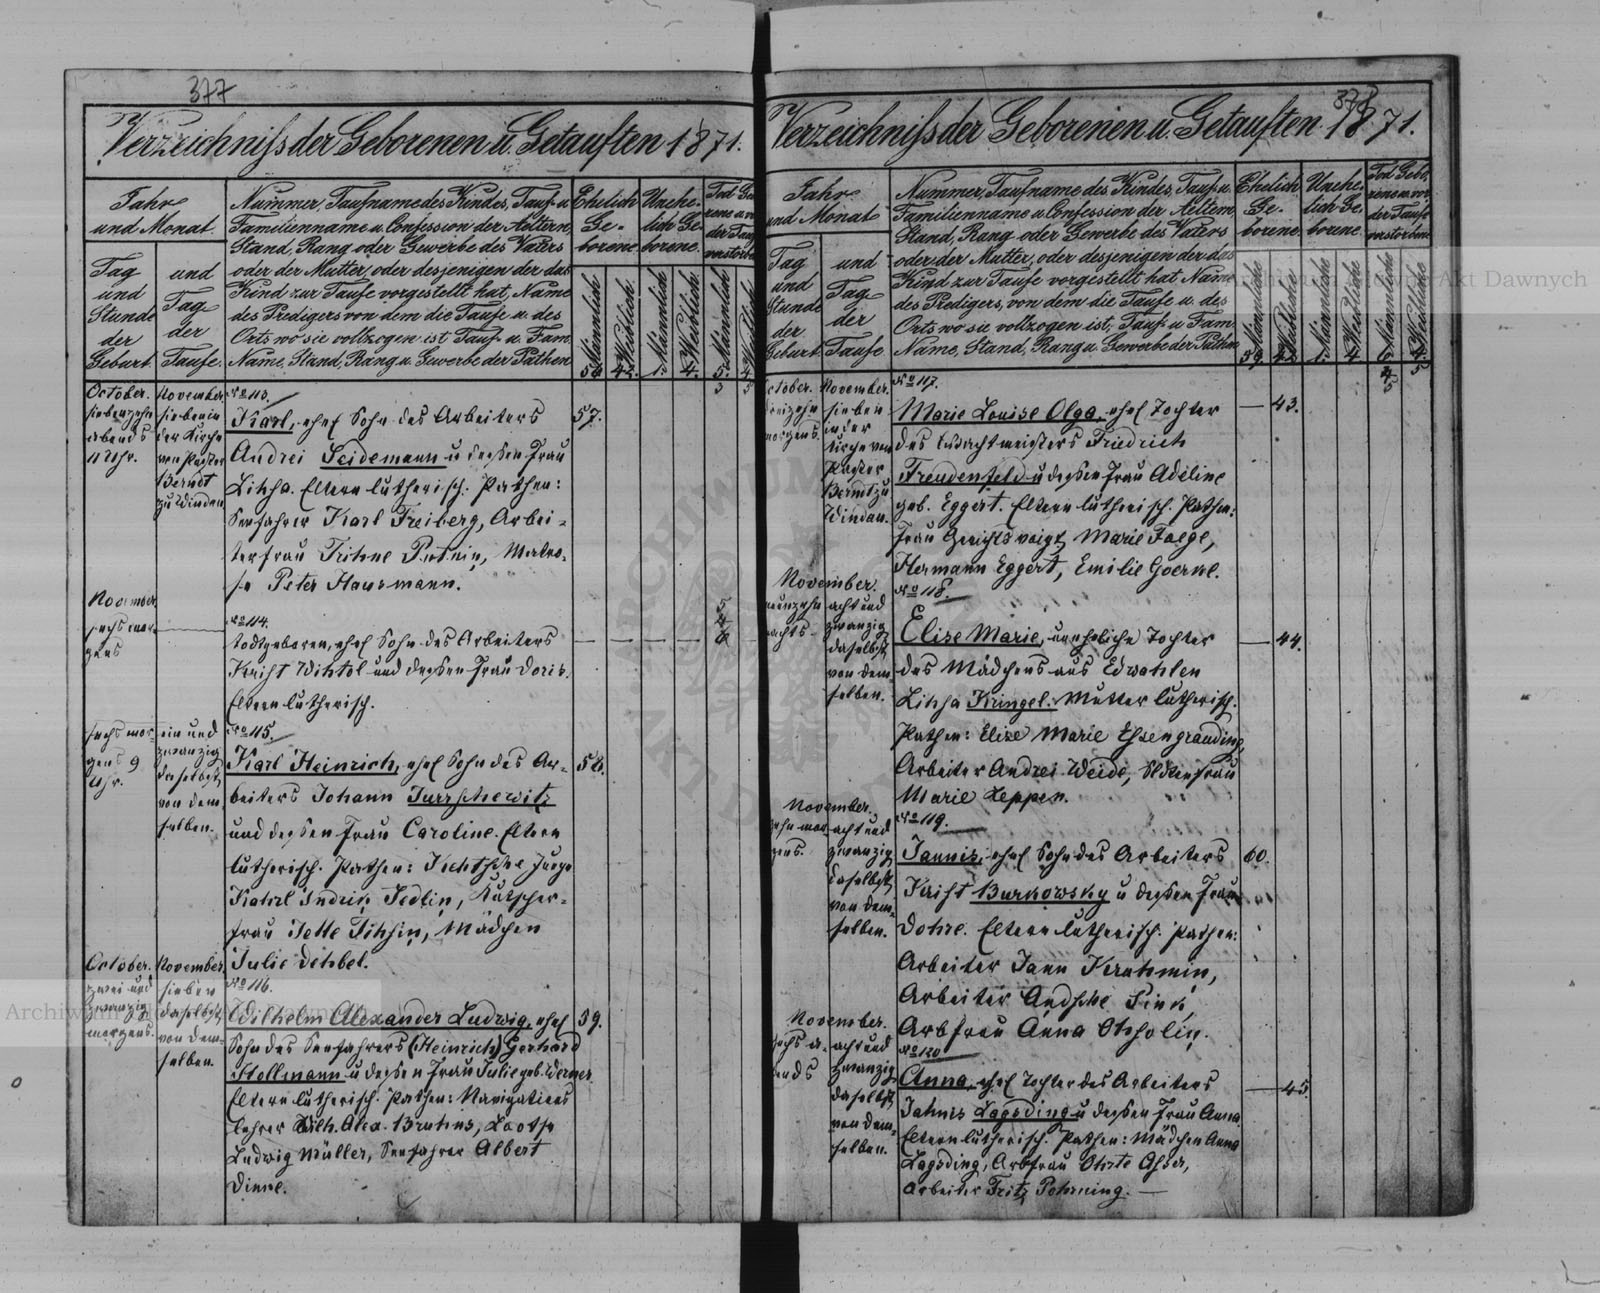 377
Verzeichniss der Geborenen u. Getauften 1871.
Jahr
und Monat.
Tag
und
Stunde
der
Geburt.
und
Tag
der
Taufe.
Nummer, Taufname des Kindes, Tauf- u.
Familienname u. Confession der Aeltern,
Stand, Rang oder Gewerbe des Vaters
oder der Mutter, oder desjenigen der das
Kind zur Taufe vorgestellt hat, Name
des Predigers von dem die Taufe u. des
Orts wo sie vollzogen ist, Tauf- u. Fam.
Name, Stand, Rang u. Gewerbe der Pathen
Ehelich
Ge-
borene.
Unehe-
lich Ge-
borene.
Männlich
Weiblich
Männlich
Weiblich
Männlich
October.
siebenzehn
abends
11 Uhr.
November
sieben in
der Kirche
von Pastor
Berndt
zu Windau
No 113.
Karl, ehel Sohn des Arbeiters 57.
Andrei Seidemann u dessen Frau
Lihsa. Eltern lutherisch. Pathen:
Seefahrer Karl Freiberg, Arbei-
terfrau Trihne, Matro-
se Peter Hausmann.
November
sechs mor-
gens
No 114.
todtgeboren, ehel Sohn des Arbeiters
Krist Wihtol und dessen Frau Doris.
Eltern lutherisch.
sechs mor-
gens 9
Uhr.
ein und
zwanzig
daselbst
von dem-
selben.
No 115.
Karl Heinrich, ehel Sohn des Ar- 58.
beiters Johann Jurrschewitz
und dessen Frau Caroline. Eltern
lutherisch. Pathen: Junge
Kahrl Indrik, Kutscher-
frau Jette, Mädchen
Julie Dehbel.
October.
zwei und
zwanzig
morgens.
November
sieben
daselbst
von dem-
selben.
No 116.
Wilhelm Alexander Ludwig, ehel 59.
Sohn des Seefahrers (Heinrich) Gerhard
Stollmann u dessen Frau Julie geb. Werner
Eltern lutherisch. Pathen: Navigations
lehrer Wilh. Alex. Bruhns, Lootse
Ludwig Müller, Seefahrer Albert
378
Verzeichniss der Geborenen u. Getauften 1871.
Jahr
und Monat
Tag
und
Stunde
der
Geburt.
und
Tag
der
Taufe
Nummer, Taufname des Kindes, Tauf- u.
Familienname u. Confession der Aeltern,
Stand, Rang oder Gewerbe des Vaters
oder der Mutter, oder desjenigen der das
Kind zur Taufe vorgestellt hat, Name
des Predigers, von dem die Taufe u. des
Orts wo sie vollzogen ist, Tauf- u. Fam.
Name, Stand, Rang u. Gewerbe der Pathen
Ehelich
Ge-
borene.
Unehe-
lich Ge-
borene.
Tod Gebo-
rene u. vor
der Taufe
verstorbene
Männliche
Weibliche
Männliche
Weibliche
Männliche
Weibliche
October.
dreizehn
morgens.
November.
sieben
in der
Kirche von
Pastor
Berndt zu
Windau.
No 117.
Marie Louise Olga, ehel Tochter — 43.
des Wachtmeisters Friedrich
Freudenfeld u dessen Frau Adeline
geb. Eggert. Eltern lutherisch. Pathen:
Frau Gerichtsvoigt Marie Faege,
Hermann Eggert, Emilie Goerke.
November.
neunzehn
nachts
acht und
zwanzig
daselbst
von dem-
selben.
No 118.
Elise Marie, uneheliche Tochter — 44.
des Mädchens aus Edwahlen
Lihsa Kringel. Mutter lutherisch.
Pathen: Elise Marie
Arbeiter Andrei Weide,
Marie Leppen.
November.
zehn mor-
gens.
acht und
zwanzig
daselbst
von dem-
selben.
No 119.
Jannis, ehel Sohn des Arbeiters 60.
Krist Burkowsky u dessen Frau
Dohre. Eltern lutherisch. Pathen:
Arbeiter Jann,
Arbeiter Andsche Sink,
Arbfrau Anna
November.
sechs a-
bends
acht und
zwanzig
daselbst
von dem-
selben.
No 120
Anna, ehel Tochter des Arbeiters — 45.
Jahnis Lagsding u dessen Frau Anna
Eltern lutherisch. Pathen: Mädchen Anna
Lagsding, Arbfrau
Arbeiter Fritz Pohrning. —